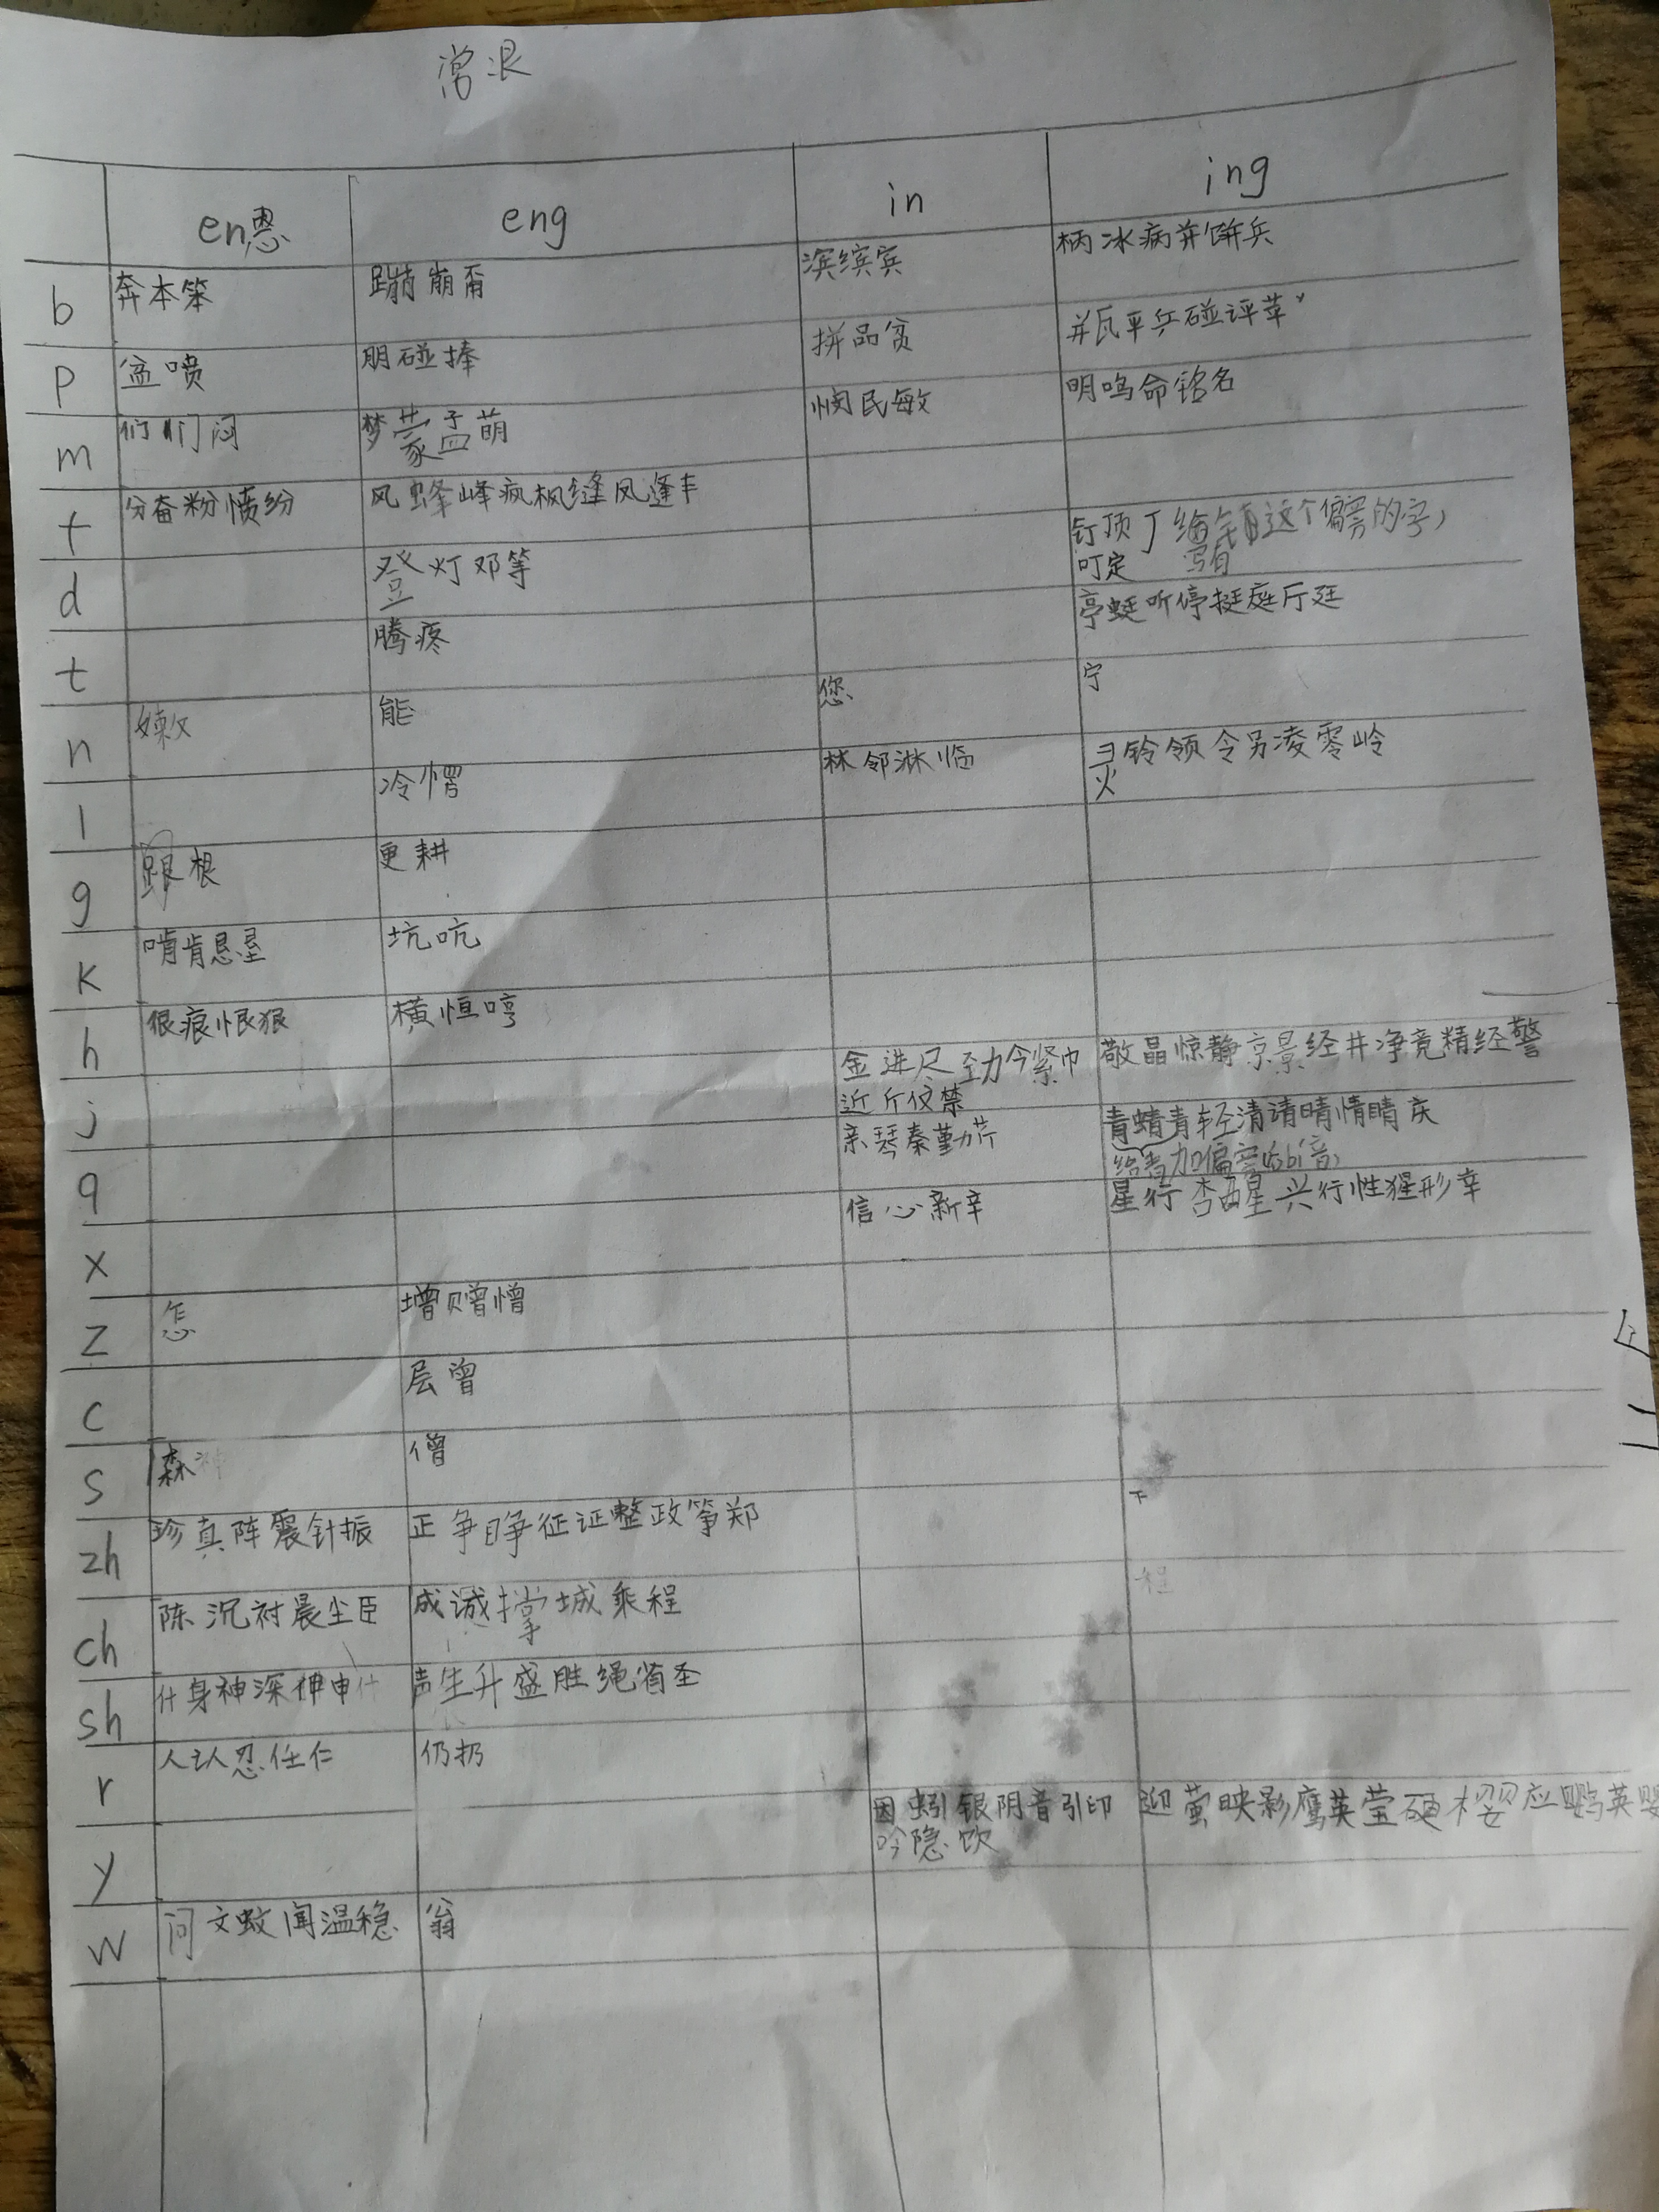 en恩 eng in ing
b 奔本笨 蹦崩甭 滨缤宾 柄冰病并饼兵
p 盆喷 朋碰捧 拼品贫 瓶平乒碰评苹
m 们们闷 梦蒙孟萌 悯民敏 明鸣命铭名
f 分奋粉愤纷 风蜂峰疯枫缝凤逢丰
d 登灯邓等 钉顶丁 这个偏旁的字
叮定 写有
t 腾疼 亭蜓听停挺庭厅廷
n 嫩 能 您 宁
l 冷愣 林邻淋临 灵铃领令另凌零岭
g 跟根 更耕
k 啃肯恳垦 坑吭
h 很痕恨狠 横恒哼
j 金进尽劲今紧巾 敬晶惊静京景经井净竞精经警
近斤仅禁
q 亲琴秦勤芹 青蜻青轻清请晴情睛庆
给青加偏旁
x 信心新辛 星行杏醒兴行性猩形幸
z 怎 增赠憎
c 层曾
s 森 僧
zh 珍真阵震针振 正争睁征证整政筝郑
ch 陈沉衬晨尘臣 成诚撑城乘程
程
sh 什身神深伸申什 声生升盛胜绳省圣
r 人认忍任仁 仍扔
y 因蚓银阴音引印 迎萤映影鹰英莹硬樱应鹦英婴
吟隐饮
w 问文蚊闻温稳 翁